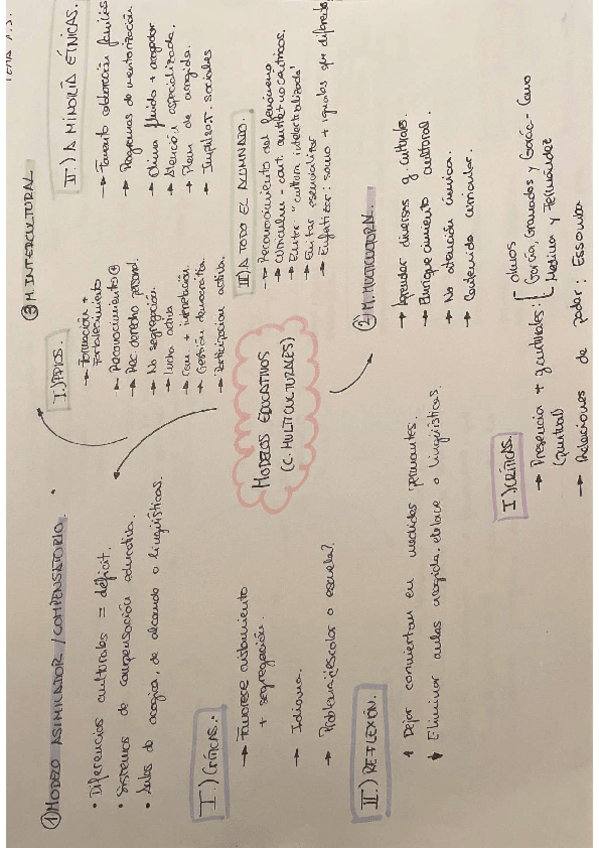 TEMA 7.3.
MODELOS EDUCATIVOS
(C. MULTICULTURALES)
① MODELO ASIMILADOR / COMPENSATORIO.
• Diferencias culturales = déficit.
• Sistemas de compensación educativa.
• Aulas de acogida, de alcance o lingüísticas.
I.) CRÍTICAS.
→ Favorece aislamiento
+ segregación.
→ Idioma.
→ Problema ¿escolar o escuela?
II.) REFLEXIÓN.
Dejar conviertan en medidas permanentes.
Eliminar aulas acogida, enlace o lingüísticas.
② M. MULTICULTURAL.
→ Aprender diversos g. culturales.
→ Enriquecimiento cultural.
→ No atención única.
→ Contenido curricular.
I) CRÍTICAS.
→ Presencia + g. culturales.
(puntual)
García, Granados y García-Cano
Medina y Fernández
→ Relaciones de poder: Essomba
③ M. INTERCULTURAL
I.) PPIOS.
→ Formación +
fortalecimiento
→ Reconocimiento
→ Rec. derecho personal.
→ No segregación.
→ Lucha activa
→ Com. + interrelación
→ Gestión democrática.
→ Participación activa.
II) A MINORÍA ÉTNICAS.
→ Fomento colaboración familias
→ Programas de mentorización
→ Clima fluido + acogedor
→ Atención especializada.
→ Plan de acogida.
→ Impulso T. sociales
III) A TODO EL ALUMNADO.
→ Reconocimiento del fenómeno
→ Curriculum = cont. antietnocéntricos.
→ Evitar "cultura intelectualizada"
→ Evitar esencializar
→ Enfatizar: somos + iguales que diferentes